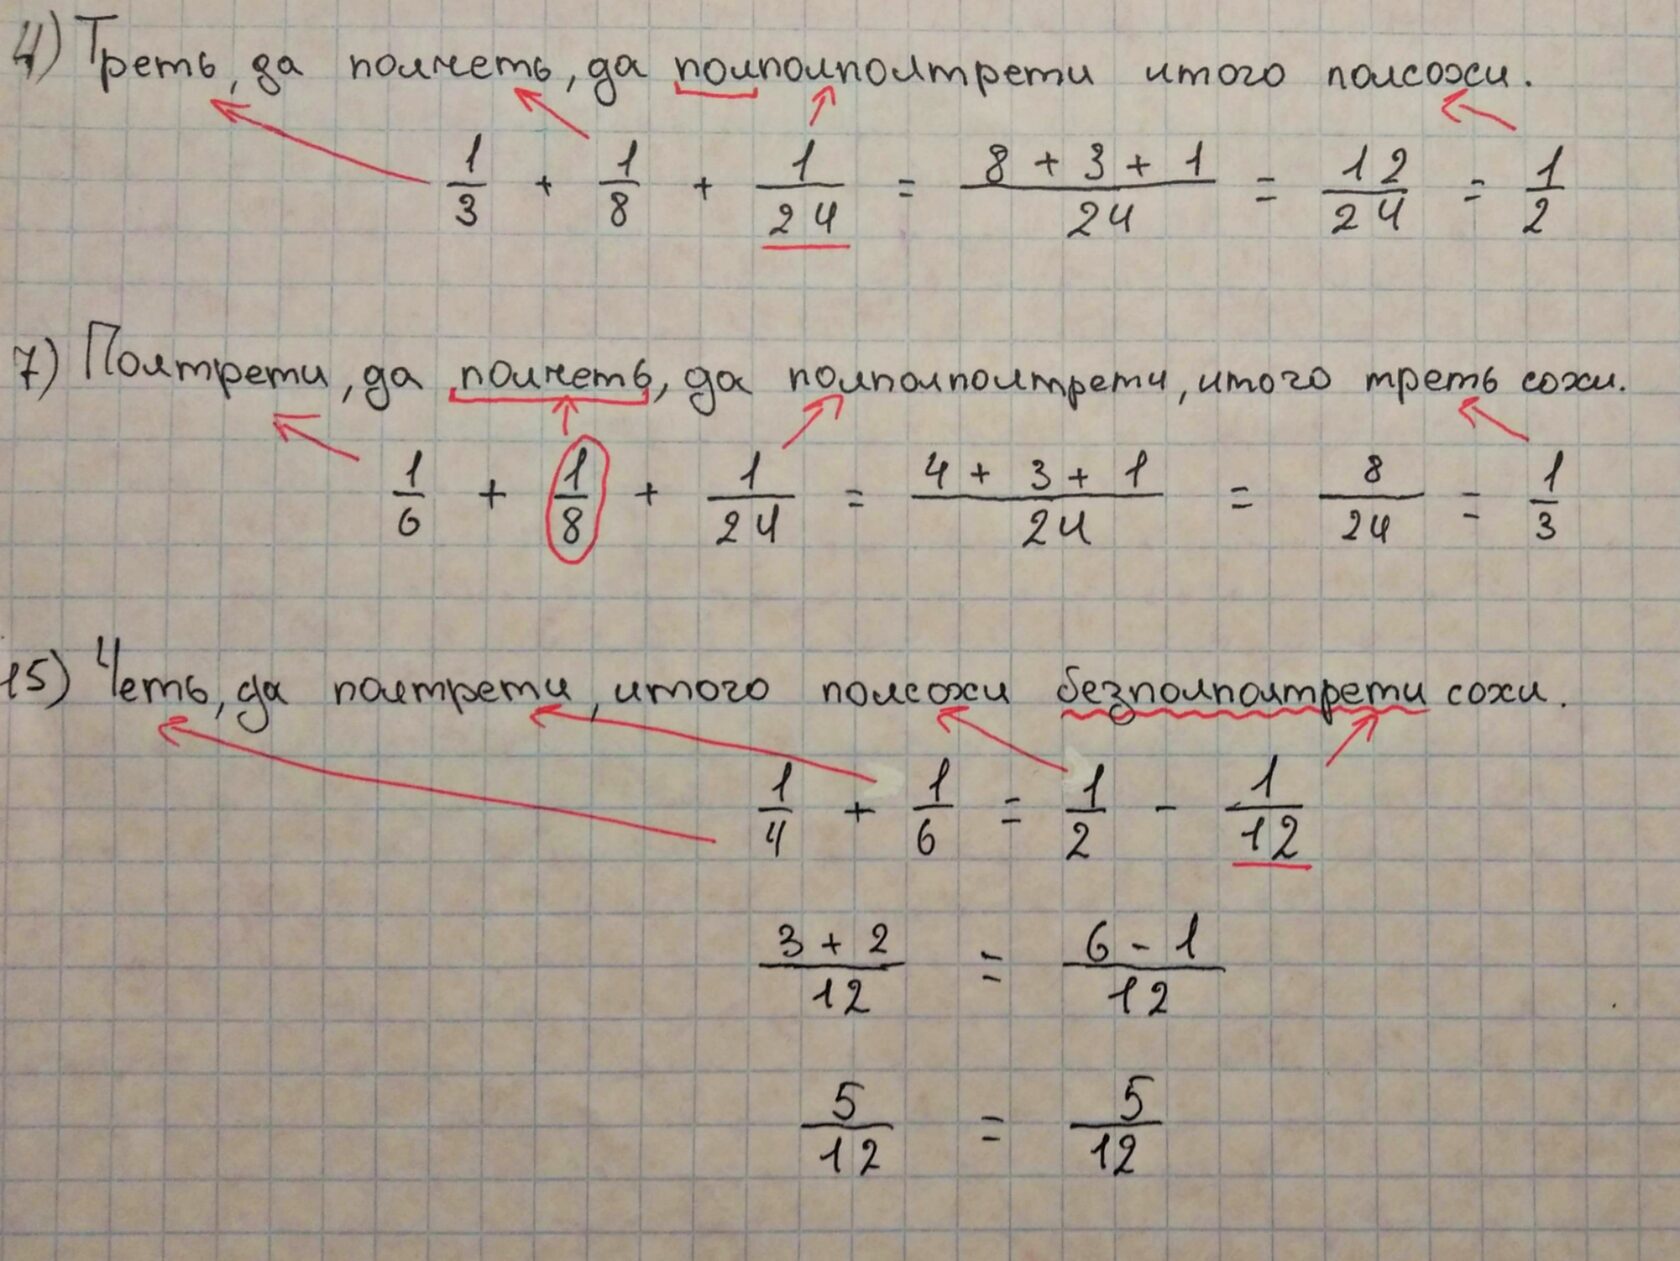 4) Треть, да полчеть, да полполполтрети итого полсохи.
1/3 + 1/8 + 1/24 = (8 + 3 + 1)/24 = 12/24 = 1/2
7) Полтрети, да полчеть, да полполполтрети, итого треть сохи.
1/6 + 1/8 + 1/24 = (4 + 3 + 1)/24 = 8/24 = 1/3
15) Четь, да полтрети, итого полсохи безполполтрети сохи.
1/4 + 1/6 = 1/2 - 1/12
(3 + 2)/12 = (6 - 1)/12
5/12 = 5/12